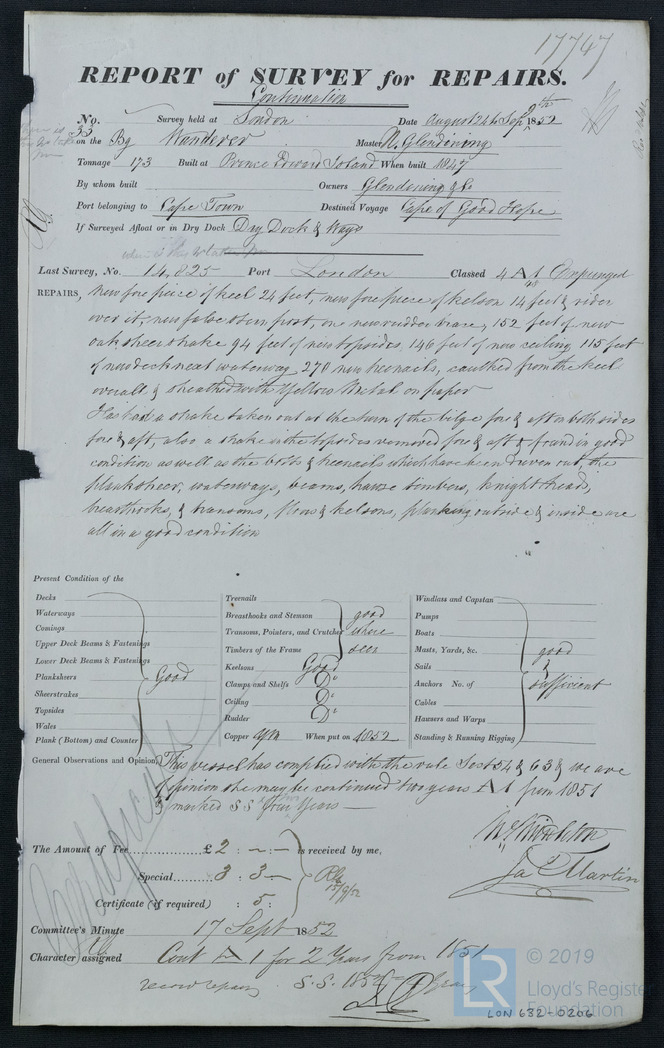 17747
REPORT of SURVEY for REPAIRS.
Continuation
No. 53 Survey held at London Date August 24 & Sep 9th 1852
on the Bg Wanderer Master R. Glendining
Tonnage 173 Built at Prince Edward Island When built 1847
By whom built Owners Glendining & Co
Port belonging to Cape Town Destined Voyage Cape of Good Hope
If Surveyed Afloat or in Dry Dock Dry Dock & Ways
Last Survey, No. 14,825 Port London Classed 4 A 1 Expunged
REPAIRS, New fore piece of keel 24 feet, new fore piece of kelson 14 feet & rider
over it, new false stern post, one new rudder brace, 152 feet of new
oak sheerstrake 94 feet of new topsides, 146 feet of new ceiling 115 feet
of new deck next waterway 270 new treenails, caulked from the keel
overall & sheathed with Yellow Metal on paper
Has had a strake taken out at the turn of the bilge fore & aft on both sides
fore & aft, also a strake in the topsides removed fore & aft & found in good
condition as well as the bolts & treenails which have been driven out, the
plank sheer, waterways, beams, hawse timbers, knighthead,
breasthooks, & transoms, floors & kelsons, planking outside & inside are
all in a good condition
Present Condition of the
Decks
Waterways
Comings
Upper Deck Beams & Fastenings
Lower Deck Beams & Fastenings
Planksheers Good
Sheerstrakes
Topsides
Wales
Plank (Bottom) and Counter
Treenails
Breasthooks and Stemson good
Transoms, Pointers, and Crutches where
Timbers of the Frame seen
Keelsons Good
Clamps and Shelfs Do
Ceiling Do
Rudder Do
Copper When put on 1852
Windlass and Capstan
Pumps
Boats
Masts, Yards, &c. good
Sails &
Anchors No. of sufficient
Cables
Hawsers and Warps
Standing & Running Rigging
General Observations and Opinion This vessel has complied with the rule Sect 54 & 63 & we are
of opinion she may be continued two years A 1 from 1851
& marked S S four Years
Ja Martin
The Amount of Fee £ 2 : ~ : — is received by me,
Special 3 : 3 — 15/9/52
Certificate (if required) : 5 :
Certificate
Committee's Minute 17 Sept 1852
Character assigned Cont A 1 for 2 Years from 1851
S.S. 1852
LR © 2019
Lloyd's Register
Foundation
LON 632-0206